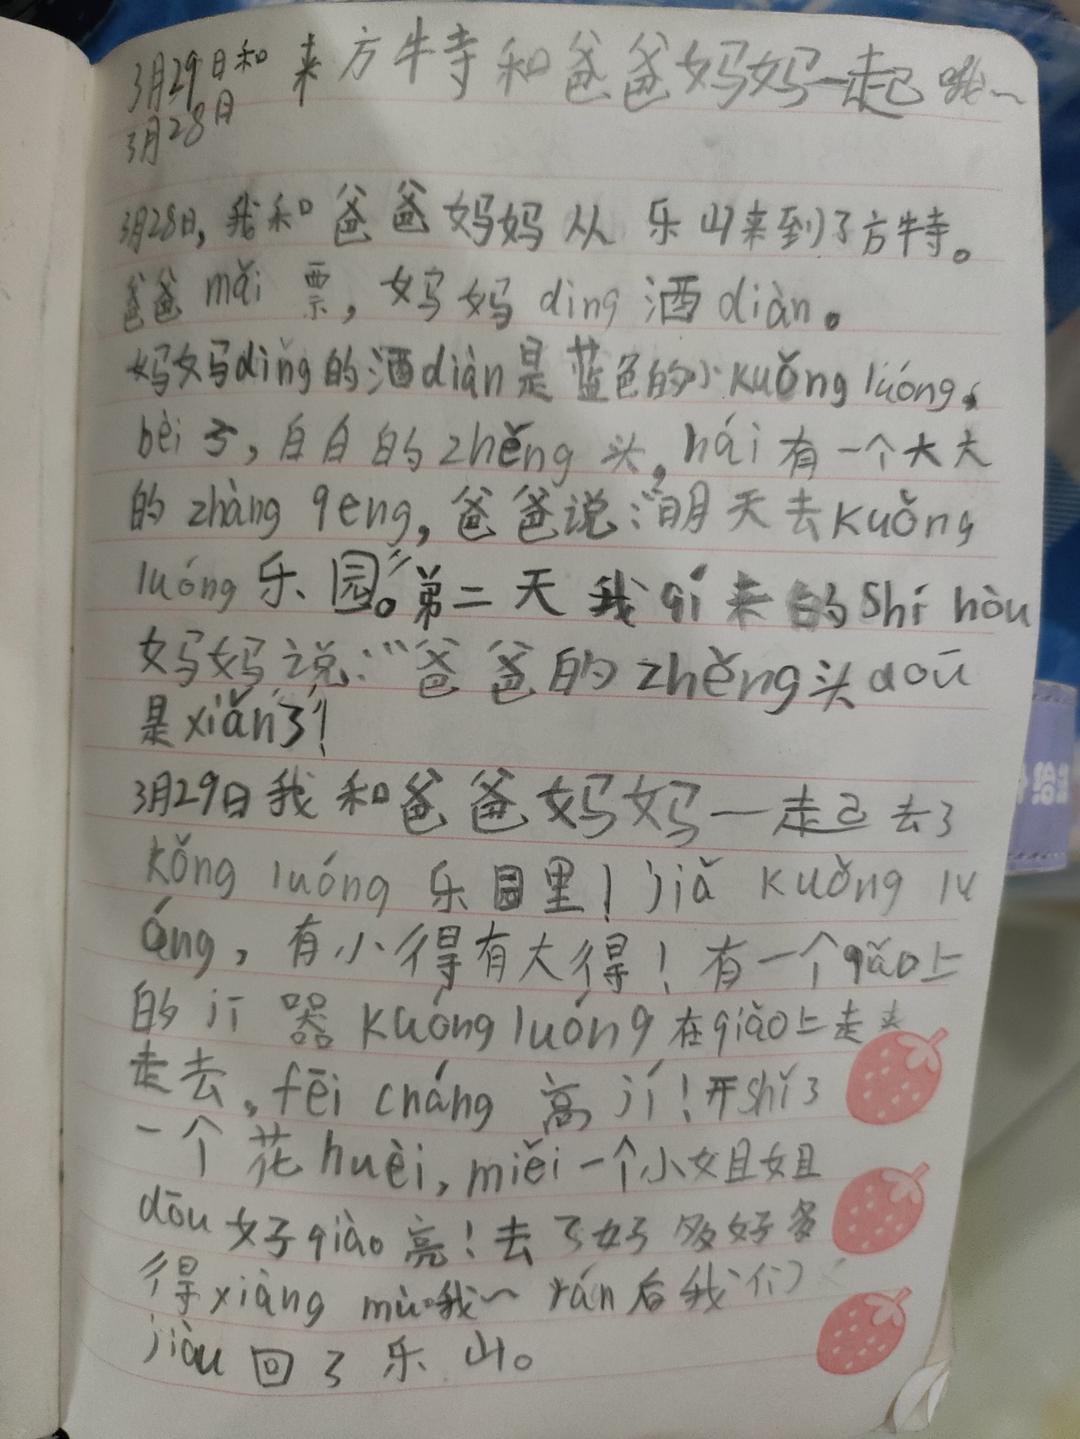 3月29日和 来方牛寺和爸爸妈妈一起哦~
3月28日
3月28日,我和爸爸妈妈从乐山来到了方牛寺。
爸爸mǎi票,妈妈ding酒diàn。
妈妈dǐng的酒diàn是蓝色的小kuǒng lúóng,
bèi子,白白的zhěng头,hái有一个大大
的zhàng qeng,爸爸说:“明天去kuǒng
lúóng乐园。”第二天我qí来的Shí hòu
妈妈说:“爸爸的zhěng头doū
是xiǎn了!
3月29日我和爸爸妈妈一起去了
kǒng luóng乐园里!jiǎ kuǒng lu
óng,有小得有大得!有一个qiǎo上
的jī器kuóng luóng在qiǎo上走来
走去,fēi cháng高jí!开shǐ了
一个花huèi,miěi一个小姐姐
dōu好qiào亮!去了好多好多
得xiàng mù哦~rán后我们
jiòu回了乐山。